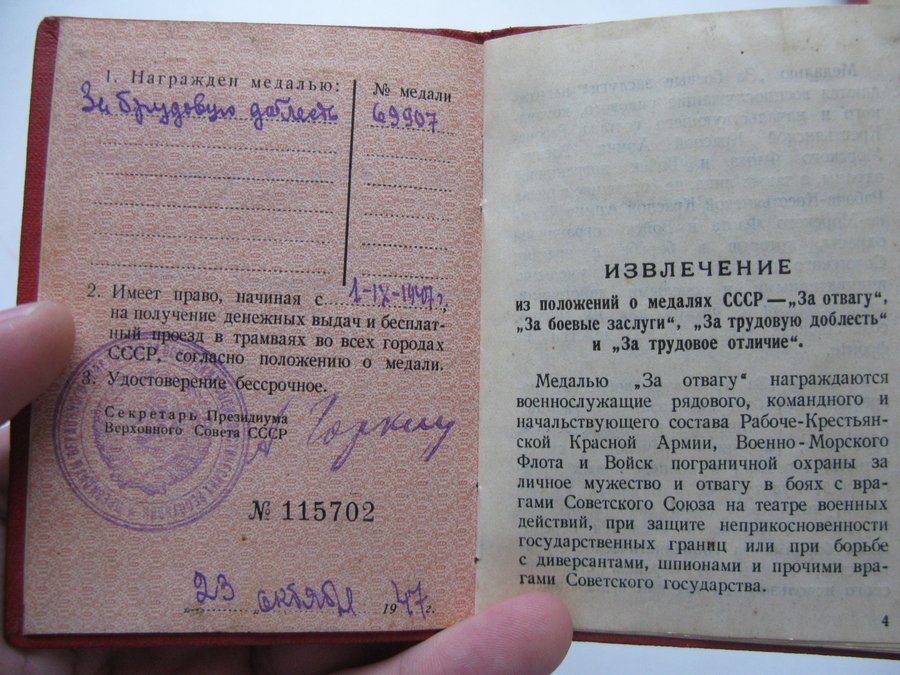 1. Награжден медалью:
За трудовую доблесть
№ медали
69907
2. Имеет право, начиная с 1-IX-1947г.,
на получение денежных выдач и бесплат-
ный проезд в трамваях во всех городах
СССР, согласно положению о медали.
3. Удостоверение бессрочное.
Секретарь Президиума
Верховного Совета СССР
А Горкин
№ 115702
23 октября 1947г.
ИЗВЛЕЧЕНИЕ
из положений о медалях СССР — „За отвагу“,
„За боевые заслуги“, „За трудовую доблесть“
и „За трудовое отличие“.
Медалью „За отвагу“ награждаются
военнослужащие рядового, командного и
начальствующего состава Рабоче-Крестьян-
ской Красной Армии, Военно-Морского
Флота и Войск пограничной охраны за
личное мужество и отвагу в боях с вра-
гами Советского Союза на театре военных
действий, при защите неприкосновенности
государственных границ или при борьбе
с диверсантами, шпионами и прочими вра-
гами Советского государства.
4